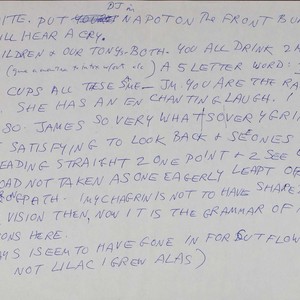 DJ in
ITE. PUT NAPOT ON THE FRONT BUR
ILL HEAR A CRY.
ILDREN & OUR TONYS-BOTH. YOU ALL DRINK 2
A 5 LETTER WORD:
CUPS ALL THESE JM. YOU ARE THE RA
SHE HAS AN ENCHANTING LAUGH. I
SO. JAMES SO VERY WHATSOVERYGRIN
SATISFYING TO LOOK BACK & SEE ONES
EADING STRAIGHT 2 ONE POINT & 2 SEE
OAD NOT TAKEN AS ONE EAGERLY LEAPT
PATH. INMYCHAGRIN IS NOT TO HAVE SHARE
VISION THEN, NOW IT IS THE GRAMMAR OF
ONS HERE.
I SEEM TO HAVE GONE IN FOR BUT FLOW
NOT LILAC I GREW ALAS)